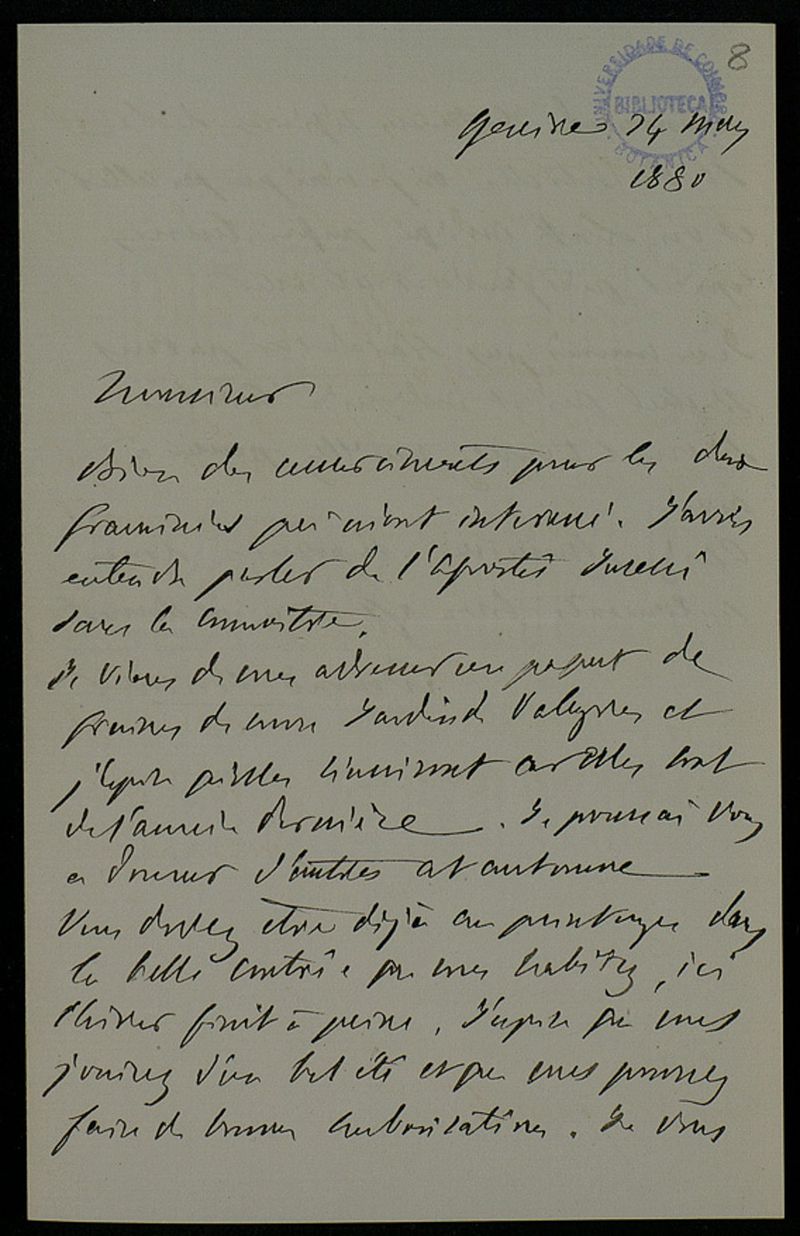 8
UNIVERSIDADE DE COIMBRA
BIBLIOTECA
BOTANICA
Genève 24 Mars
1880
Monsieur
Bien des remerciments pour les deux
Graminées qui m'ont interessé. J'avais
entendu parler de l'Agrostis Juressi
sans la connaître.
Je viens de vous adresser un paquet de
graines de mon Jardin de Valeyres et
j'espère qu'elles lèveront car elles sont
de l'année dernière. Je pourrai vous
en donner d'autres cet automne
Vous devez être déjà au printemps dans
la belle contrée que vous habitez, ici
l'hiver finit à peine. J'espère que vous
jouirez d'un bel été et que vous pourrez
faire de bonnes herborisations. Je vous